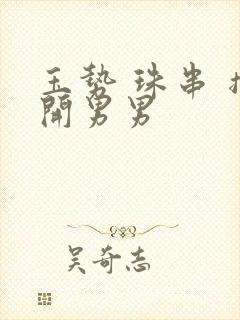 玉势 珠串 扌
開男男
吴奇志